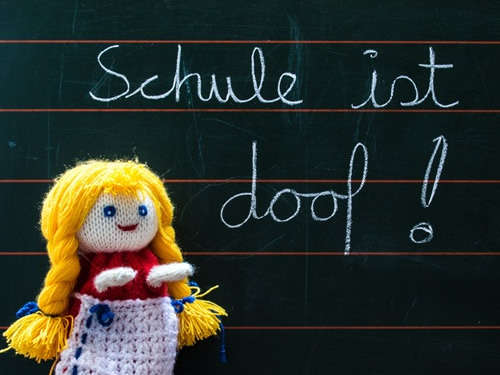 Schule ist
doof!